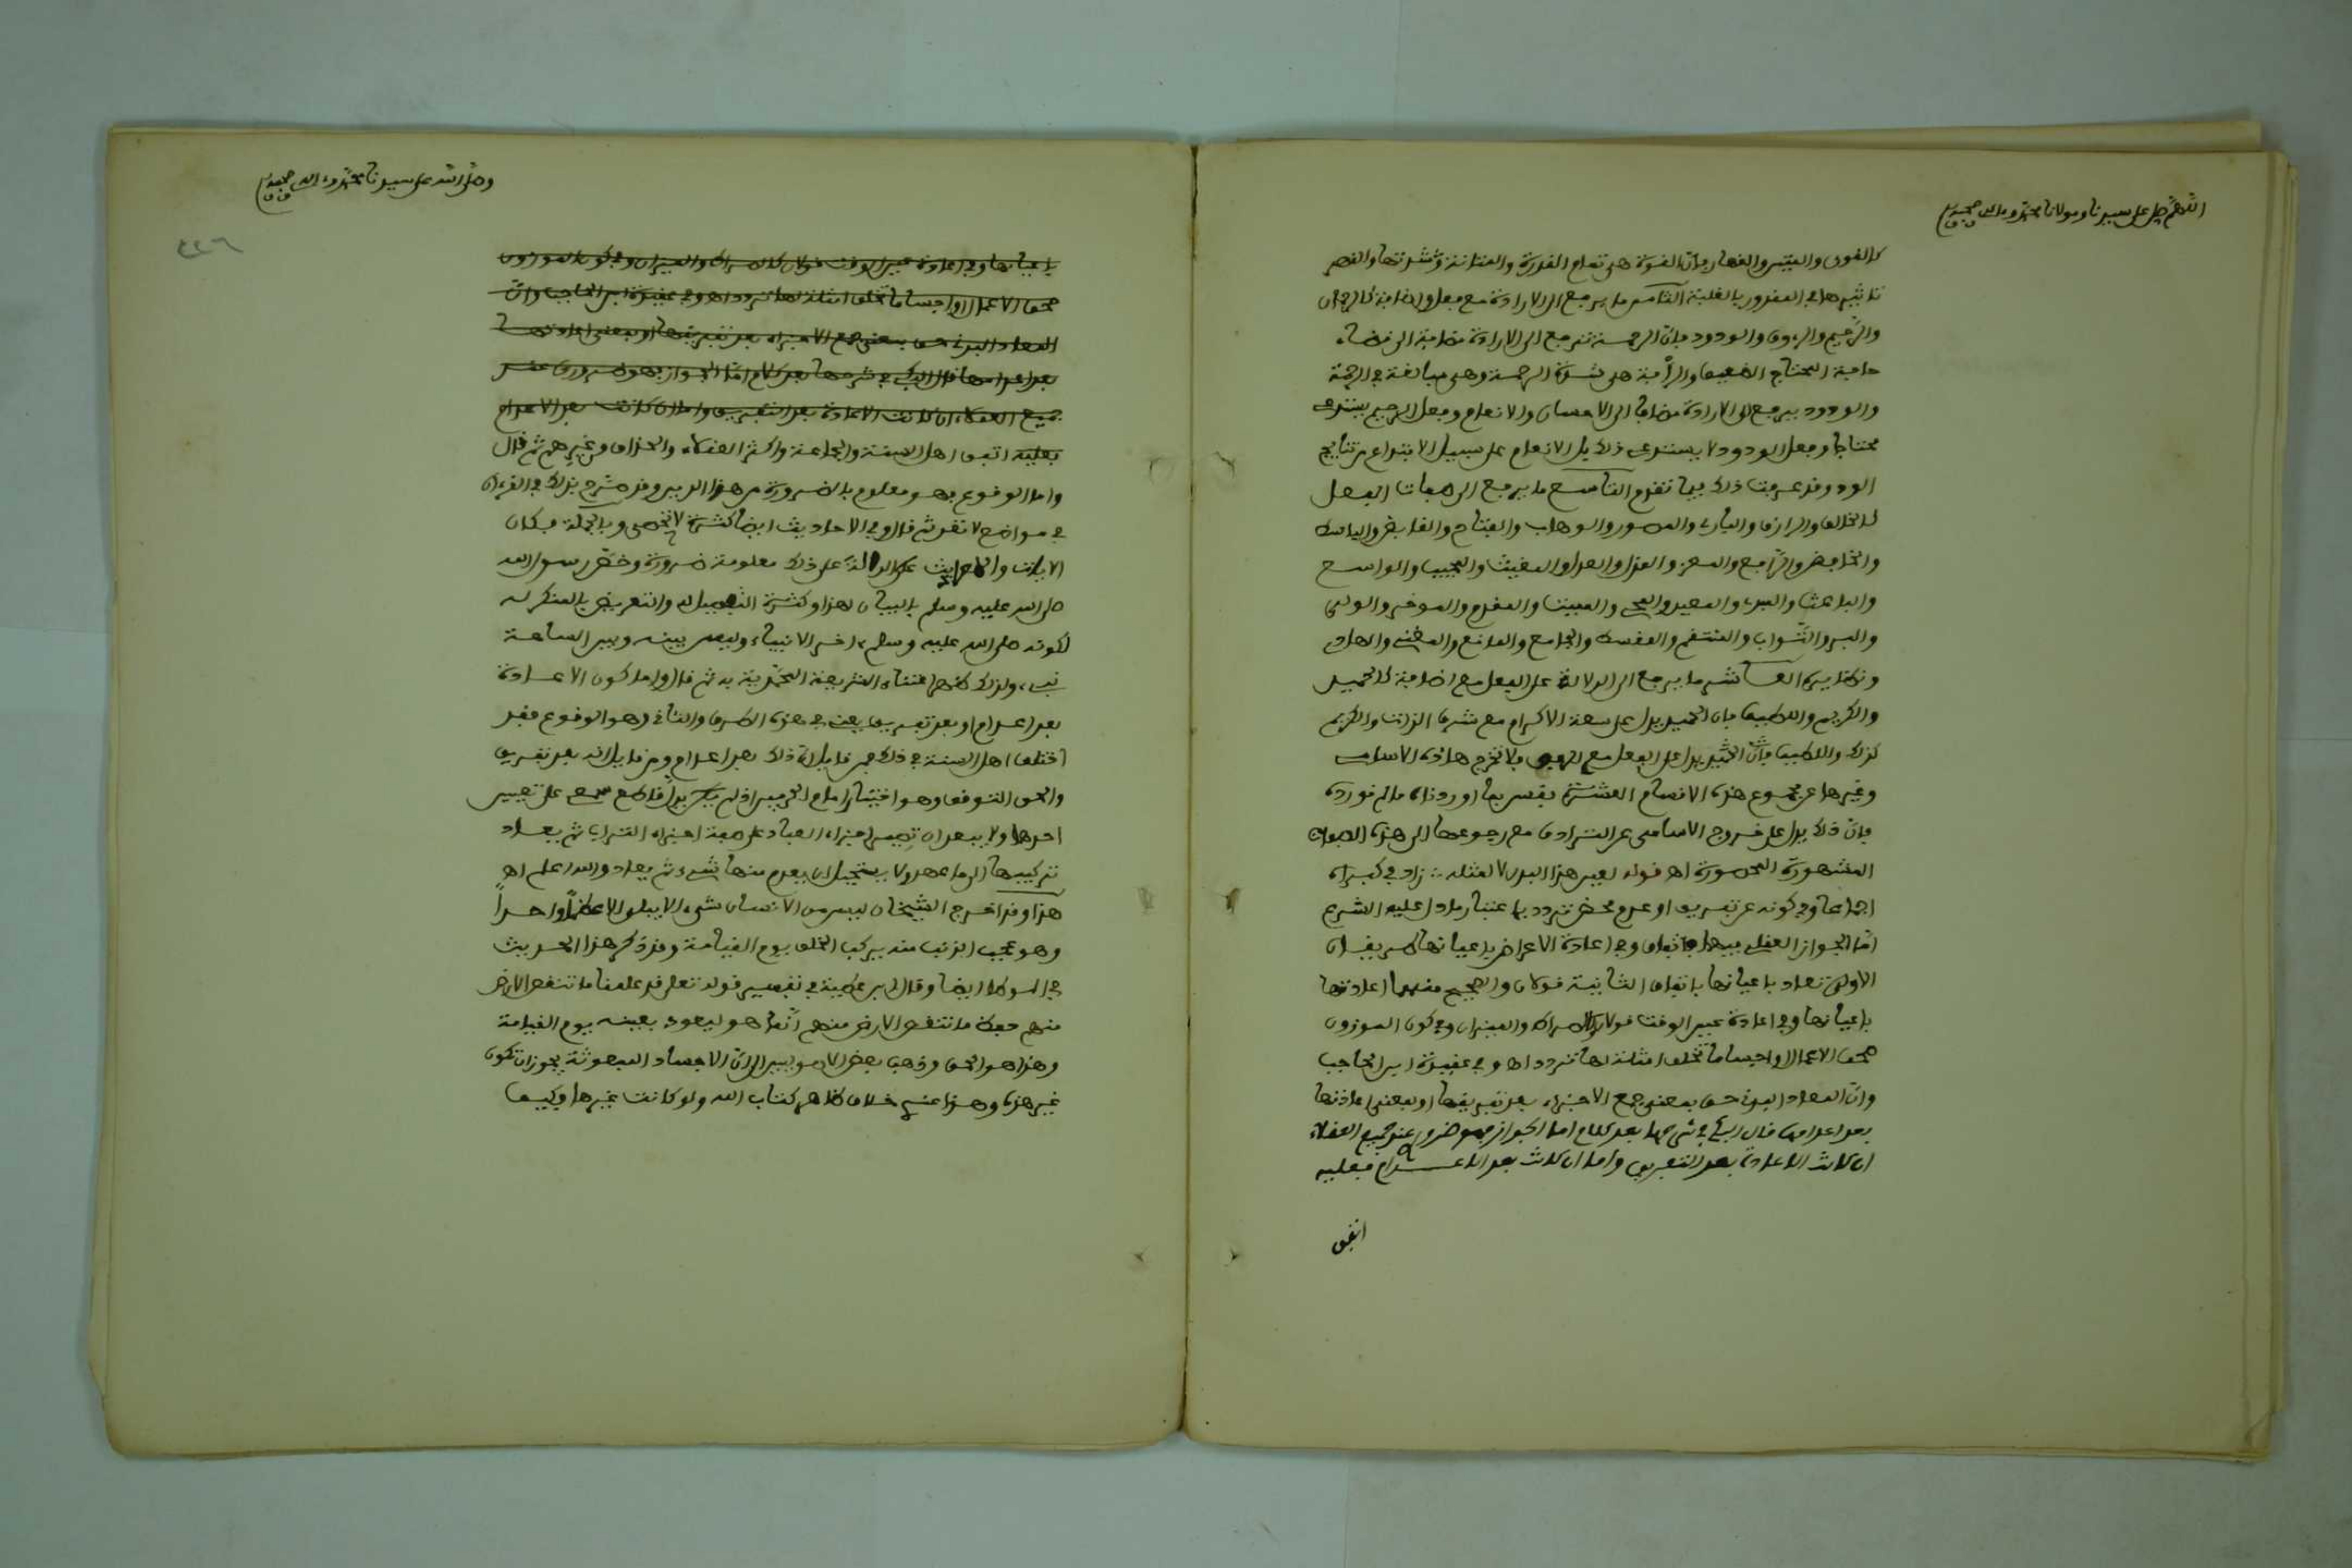 اللهم صل على سيدنا ومولانا محمد وءاله وصحبه
كالقوي والمتين والقهار فإن القوة هي تمام القدرة والمتانة شدتها والقهر
تاثيرها في المقدور بالغلبة الثامن ما يرجع الى الارادة مع فعل واضافة كالرحمان
والرحيم والرءوف والودود فإن الرحمة ترجع الى الارادة مضافة الى قضاء
حاجة المحتاج الضعيف والرأفة هي شدة الرحمة وهي مبالغة في الرحمة
والودود يرجع الى الارادة مضافا الى الاحسان والانعام وفعل الرحيم يستدعي
محتاجا وفعل الودود لا يستدعي ذلك بل الانعام على سبيل الابتداء من نتايج
الود وقد عرفت ذلك فيما تقدم التاسع ما يرجع الى صفات الفعل
كالخالق والرازق والبارئ والمصور والوهاب والفتاح والقابض والباسط
والخافض والرافع والمعز والمذل والعدل والمغيث والمجيب والواسع
والباعث والمبدئ والمعيد والمحيي والمميت والمقدم والمؤخر والوالي
والبر والتواب والمنتقم والمقسط والجامع والمانع والمغني والهادي
ونظايره العاشر ما يرجع الى الدلالة على الفعل مع اضافة كالمجيد
والكريم واللطيف فإن المجيد يدل على سعة الاكرام مع شرف الذات والكريم
كذلك واللطيف فإن يدل على الفعل مع الرفق فلا تخرج هاذه الاسامي
وغيرها عن مجموع هذه الاقسام العشرة فقس بما اوردناه ما لم نورده
فإن ذلك يدل على خروج الاسامي عن الترادف مع رجوعها الى هذه الصفات
المشهورة المحصورة اهـ قوله لعين هذا البدن لا لمثله زاد في كبراه
اجماعا وفي كونه عن تفريق او عدم محض تردد باعتبار ما دل عليه الشرع
اما الجواز العقلي فيهما باتفاق وفي اعادة الاعراض باعيانها طريقان
الاولى تعاد باعيانها باتفاق الثانية قولان والصحيح منهما اعادتها
باعيانها وفي اعادة عين الوقت قولان كالصراط والميزان وفي كون الموزون
صحف الاعمال او اجساما تخلق امثلة لها تردد اهـ وفي عقيدة ابن الحاجب
وان المعاد البدني حق بمعنى جمع الاجزاء بعد تفريقها او بمعنى اعادتها
بعد اعدامها قال في شرحها بعد كلام اما الجواز فهو ضروري عند جميع العقلاء
ان كانت الاعادة بعد التفريق واما ان كانت بعد الاعدام فعليه
اتفق
وصلى الله على سيدنا محمد وءاله وصحبه
٢٢٦
باعيانها وفي اعادة عين الوقت قولان كالصراط والميزان وفي كون الموزون
صحف الاعمال او اجساما تخلق امثلة لها تردد اهـ وفي عقيدة ابن الحاجب وان
المعاد البدني حق بمعنى جمع الاجزاء بعد تفريقها او بمعنى اعادتها
بعد اعدامها قال في شرحها بعد كلام اما الجواز فهو ضروري عند
جميع العقلاء ان كانت الاعادة بعد التفريق واما ان كانت بعد الاعدام
فعليه اتفق اهل السنة والجماعة واكثر العقلاء والحذاق من غيرهم ثم قال
واما الوقوع فهو معلوم بالضرورة من هذا الدين وقد صرح بذلك في القرءان
في مواضع لا تعد ثم قال وفي الاحاديث ايضا كثيرة لا تحصى وبالجملة فكان
الايات والاحاديث الدالة على ذلك معلومة ضرورة وخص رسول الله
صلى الله عليه وسلم بالبيان لهذا وكثرة التفصيل له والتعريض بالمنكر له
لكونه صلى الله عليه وسلم ءاخر الانبياء وليس بينه وبين الساعة
نبي ولذلك كثر اعتناء الشريعة المحمدية به ثم قال واما كون الاعادة
بعد اعدام او بعد تفريق يعني في هذه الطرف والثاني وهو الوقوع فقد
اختلف اهل السنة في ذلك فمن قايل ان ذلك بعد اعدام ومن قايل انه بعد تفريق
والحق التوقف وهو اختيار امام الحرمين اذ لم يدل قاطع سمعي على تعيين
احدها ولا يبعد ان تصير اجزاء العباد على صفة اجزاء التراب ثم يعاد
تركيبها الى ما عهد ولا يستحيل ان يعدم منها شيء ثم يعاد والله اعلم اهـ
هذا وقد اخرج الشيخان ليس من الانسان شيء الا يبلى الا عظما واحدا
وهو عجب الذنب منه يركب الخلق يوم القيامة وقد ذكر هذا الحديث
في الموطا ايضا وقال ابن عطية في تفسير قوله تعلى قد علمنا ما تنقص الارض
منهم حفظ ما تنقص الارض منهم انما هو ليعود بعينه يوم القيامة
وهذا هو الحق وذهب بعض الاصوليين الى ان الاجساد المبعوثة يجوز ان تكون
غير هذه وهذا عندي خلاف ظاهر كتاب الله ولو كانت غيرها فكيف